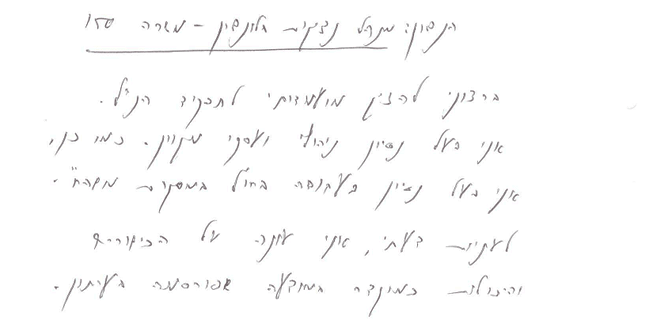 הנדון: מנהל נציגות בלונדון - משרה 150
ברצוני להציג מועמדותי לתפקיד הנ"ל.
אני בעל נסיון ניהולי ועסקי מגוון. כמו כן,
אני בעל נסיון בעבודה בחו"ל במסגרת משהב"ט.
לעניות דעתי, אני עונה על הכישורים
והיכולות כמוגדר במודעה שפורסמה בעיתון.